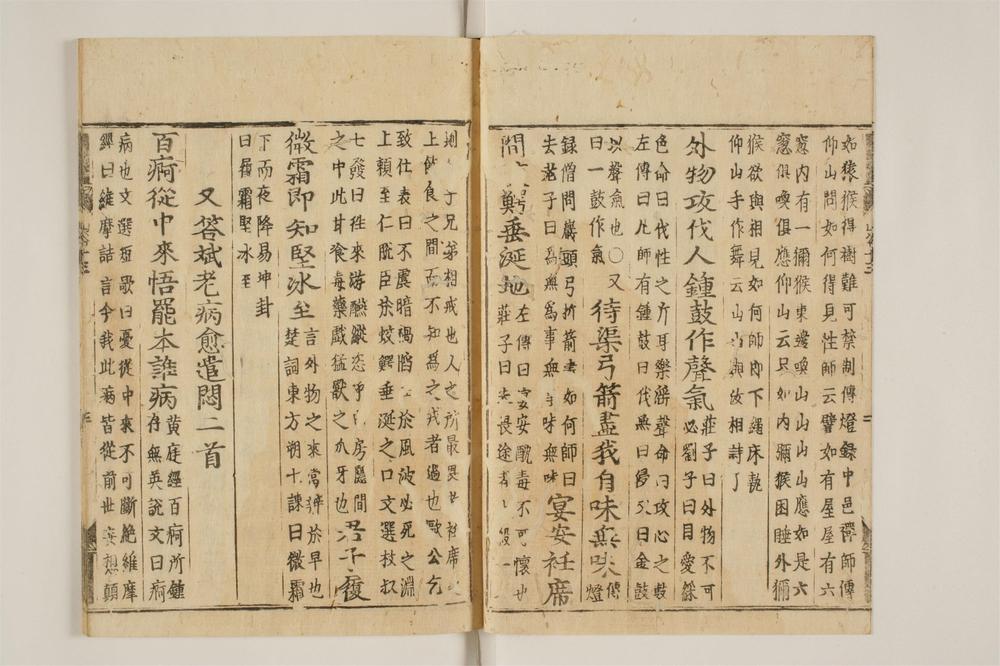 如猿猴得樹難可禁制傳燈錄中邑禪師傳
仰山問如何得見性師云譬如有屋屋有六
窓內有一獼猴東邊喚山山山山應如是六
窓俱喚俱應仰山云只如內獼猴困睡外獼
猴欲與相見如何師即下繩床執
仰山手作舞云山山與汝相詩了
外物攻伐人鍾鼓作聲氣
莊子曰外物不可
必劉子曰目愛綵
色命曰伐性之斤耳樂淫聲命曰攻心之鼓
左傳曰凡師有鍾鼓曰伐無曰侵又曰金鼓
以聲氣也〇又
曰一鼓作氣
待渠弓箭盡我自味無味
傳
燈
録僧問巖頭弓折箭盡如何師曰
去老子曰為無為事無事味無味
宴安衽席
間鰐垂涎地
左傳曰宴安酖毒不可懷也
莊子曰夫畏途者殺一
則子兄弟相戒也人之所最畏者衽席之
上飲食之間而不知爲之戒者過也歐公乞
致仕表曰不震暗禍陷於風波必死之淵
上賴至仁脫臣於蛟鰐垂涎之口文選枚叔
七發曰往來游醼縱恣乎房隱間
之中此甘食毒藥戲猛獸之爪牙也
君子履
微霜即知堅冰至
言外物之來當辨於早也
楚詞東方朔七諫曰微霜
下而夜降易坤卦
曰履霜堅冰至
又答斌老病愈遣悶二首
百痾從中來悟罷本誰病
黃庭經百痾所鍾
存無英說文曰痾
病也文選短歌曰憂從中來不可斷絶維摩
經曰維摩詰言今我此病皆從前世妄想顛